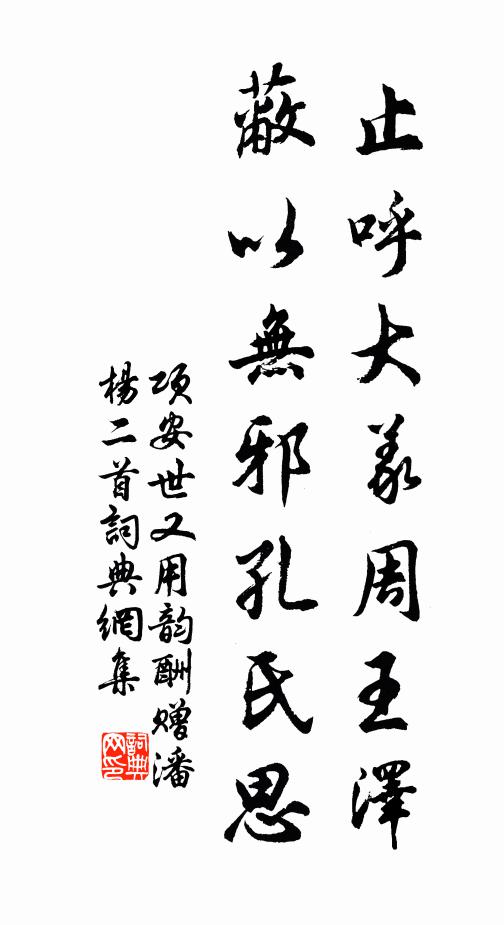 止呼大義周王澤
蔽以無邪孔氏思
項安世又用韵酬赠潘
楊二首詞典網集
詞典
网印